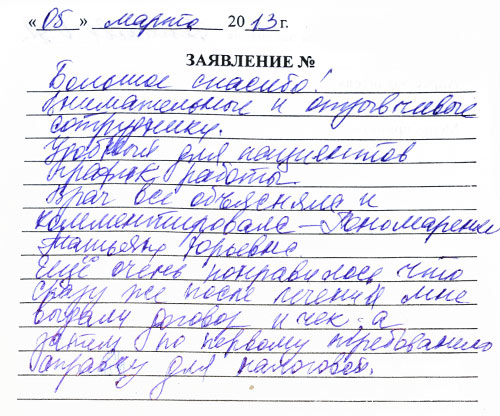 « 05 » марта 2013 г.
ЗАЯВЛЕНИЕ №
Большое спасибо!
Внимательные и отзывчивые
сотрудники.
Удобный для пациентов
график работы.
Врач все объясняла и
комментировала – Пономаренко
Татьяна Юрьевна
Ещё очень понравилось что
сразу же после лечения мне
выдали договор и чек, а
затем по первому требованию
справку для налоговой.